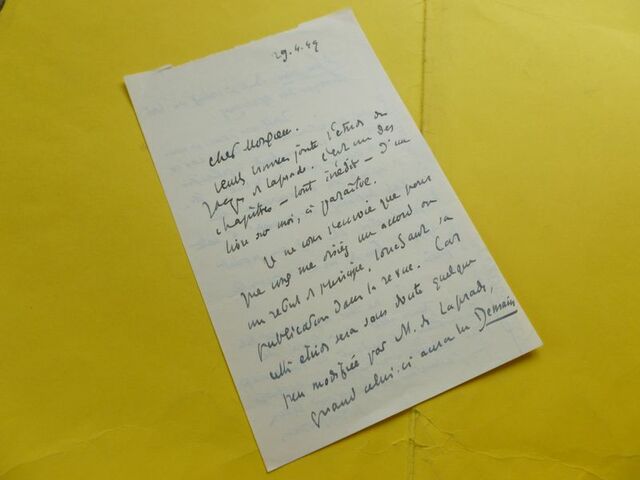 29.4.49
Cher Monsieur.
Veuillez trouver jointe l'étude de
Jacques de Laprade. C'est un des
chapitres – tout inédit – d'un
livre sur moi, à paraître.
Je ne vous l'envoie que pour
que vous me disiez un accord ou
un refus de principe, touchant sa
publication dans la revue. Car
cette étude sera sans doute quelque
peu modifiée par M. de Laprade,
quand celui-ci aura lu Demain